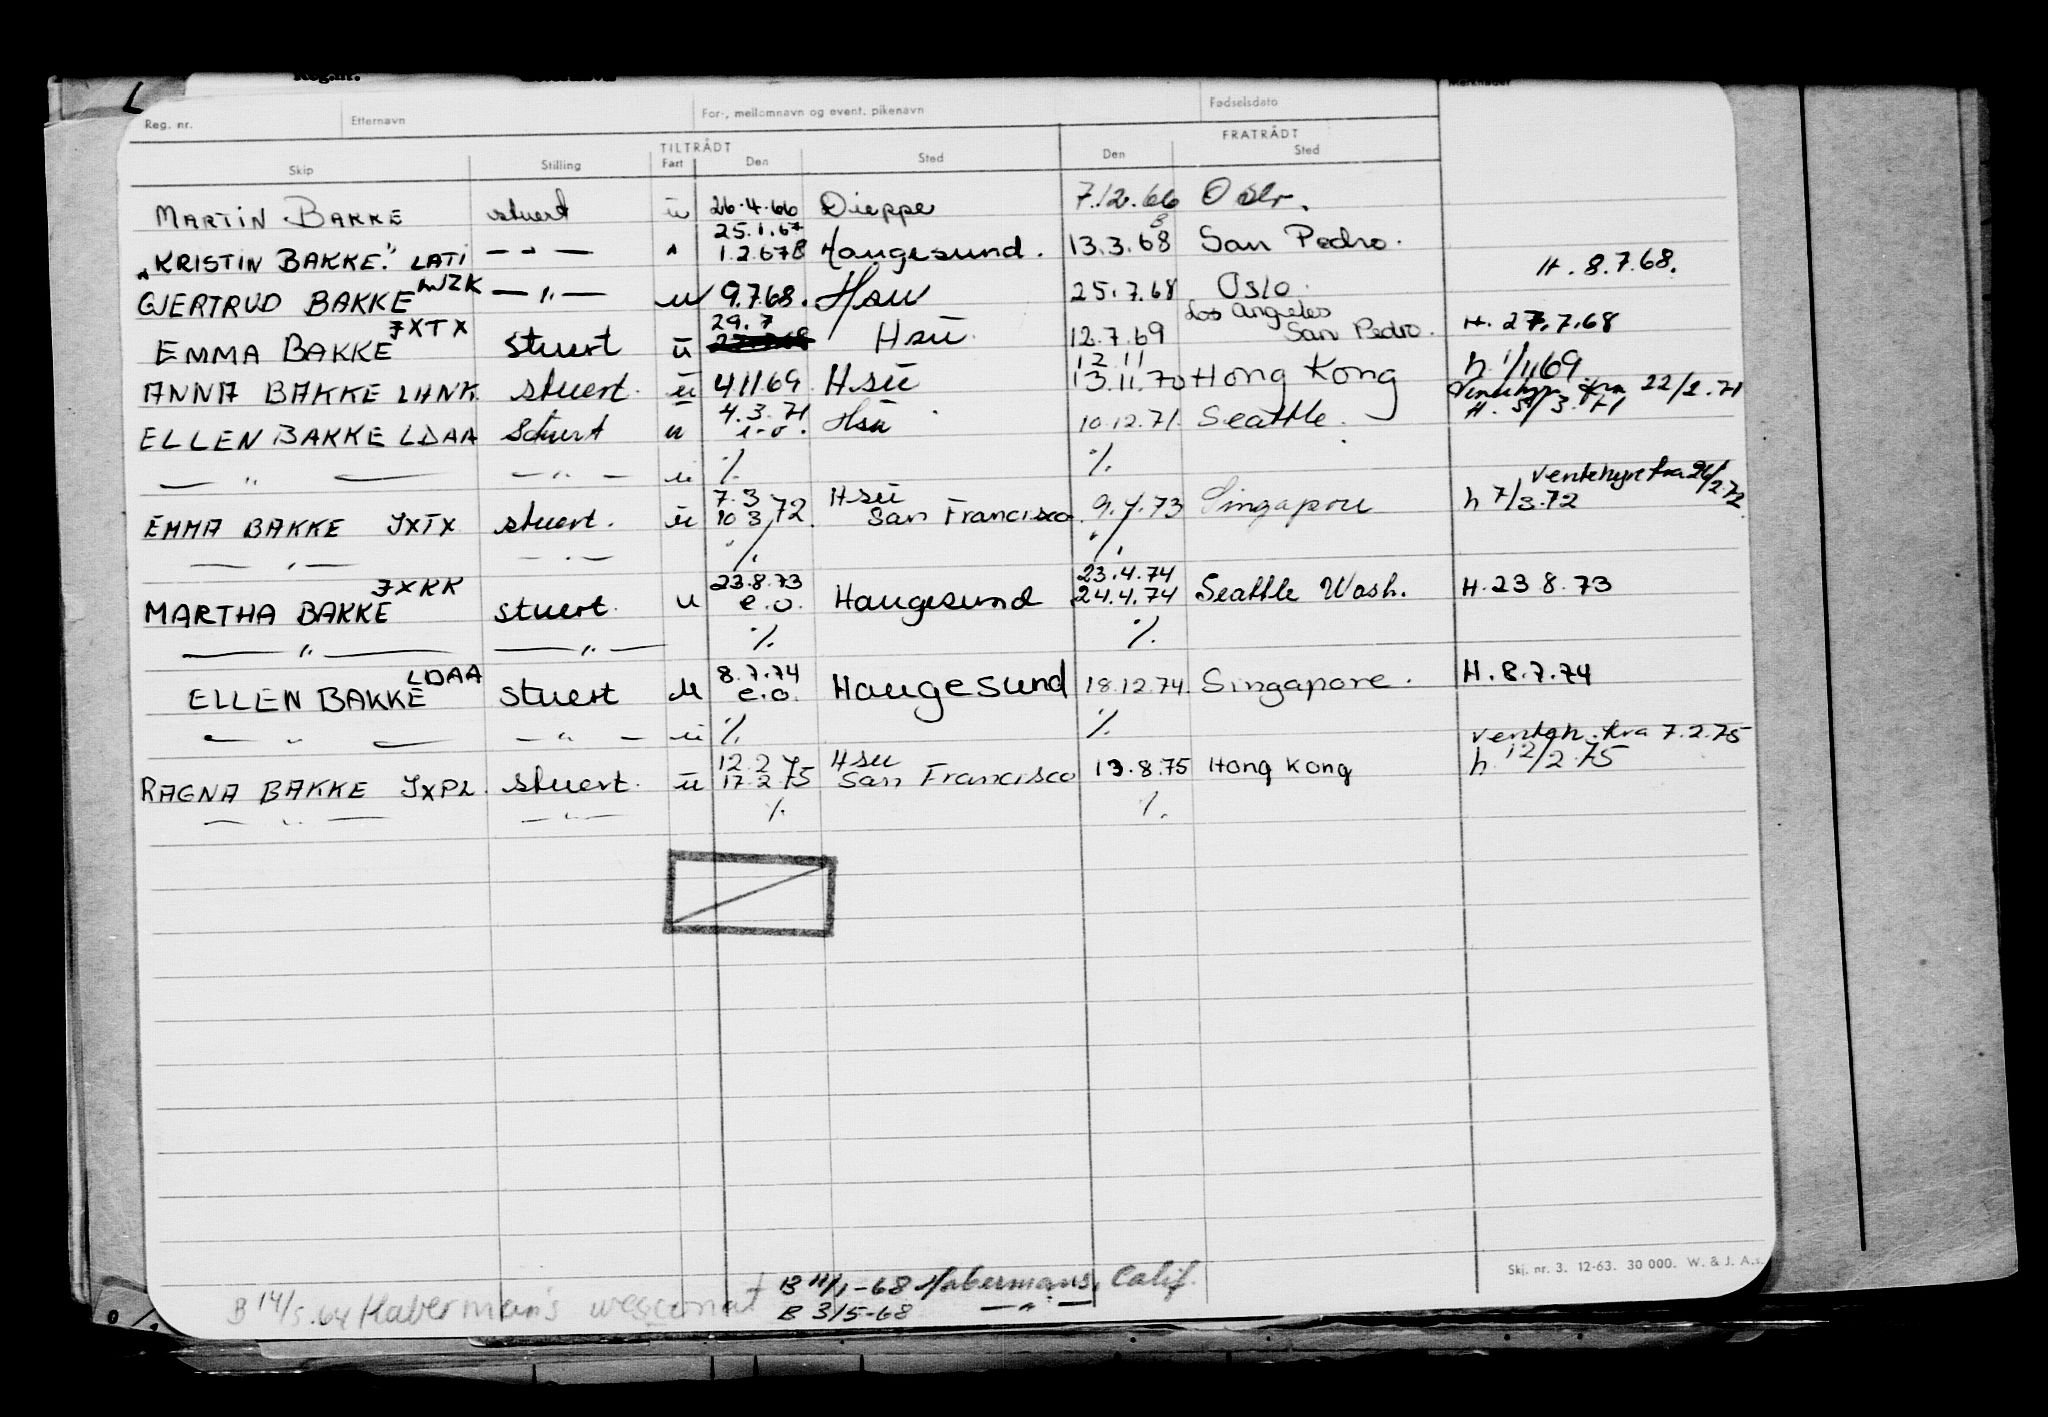 Reg. nr. Etternavn For-, mellomnavn og event. pikenavn Fødselsdato
TILTRÅDT FRATRÅDT
Skip Stilling Fart Den Sted Den Sted
MARTIN BAKKE stuert ü 26.4.66 Dieppe 7.12.66 Oslo.
25.1.67
"KRISTIN BAKKE." LATI — " — " 1.2.67 B Haugesund. 13.3.68 San Pedro.
H. 8.7.68.
GJERTRUD BAKKE — " — u 9.7.68. Hsu 25.7.68 Oslo.
29.7 Los Angeles
EMMA BAKKE JXTX stuert ü Hsü 12.7.69 San Pedro. H. 27.7.68
12.11
ANNA BAKKE LHNK stuert. ü 4.11.69 Hsü 13.11.70 Hong Kong h. 1/11.69
Ventehyre fra 22/2.71
4.3.71 H. 5/3.71
ELLEN BAKKE LDAA Stuert u e.o. Hsü 10.12.71. Seattle.
— " — — " — ü %. %.
ventehyre fra 26/2.72.
7.3 Hsü
EMMA BAKKE JXTX stuert. ü 10.3.72 San Francisco. 9.7.73 Singapore h 7/3.72
— " — — " — %. %.
23.8.73 23.4.74
MARTHA BAKKE JXKK stuert. u e.o. Haugesund 24.4.74 Seattle Wash. H. 23 8.73
— " — — " — %. %.
8.7.74
ELLEN BAKKE LDAA stuert u e.o. Haugesund 18.12.74. Singapore. H. 8.7.74
— " — — " — ü %. %.
venteh. fra 7.2.75
12.2 Hsü
RAGNA BAKKE JXPL. stuert. ü 17.2.75 San Francisco 13.8.75 Hong Kong h. 12/2.75
— " — — " — %. %.
Skj. nr. 3. 12-63. 30 000. W. & J. A.s.
B 14/5.64 Haberman's
B 11/1-68 Habermans, Calif.
B 3/5-68 — " —